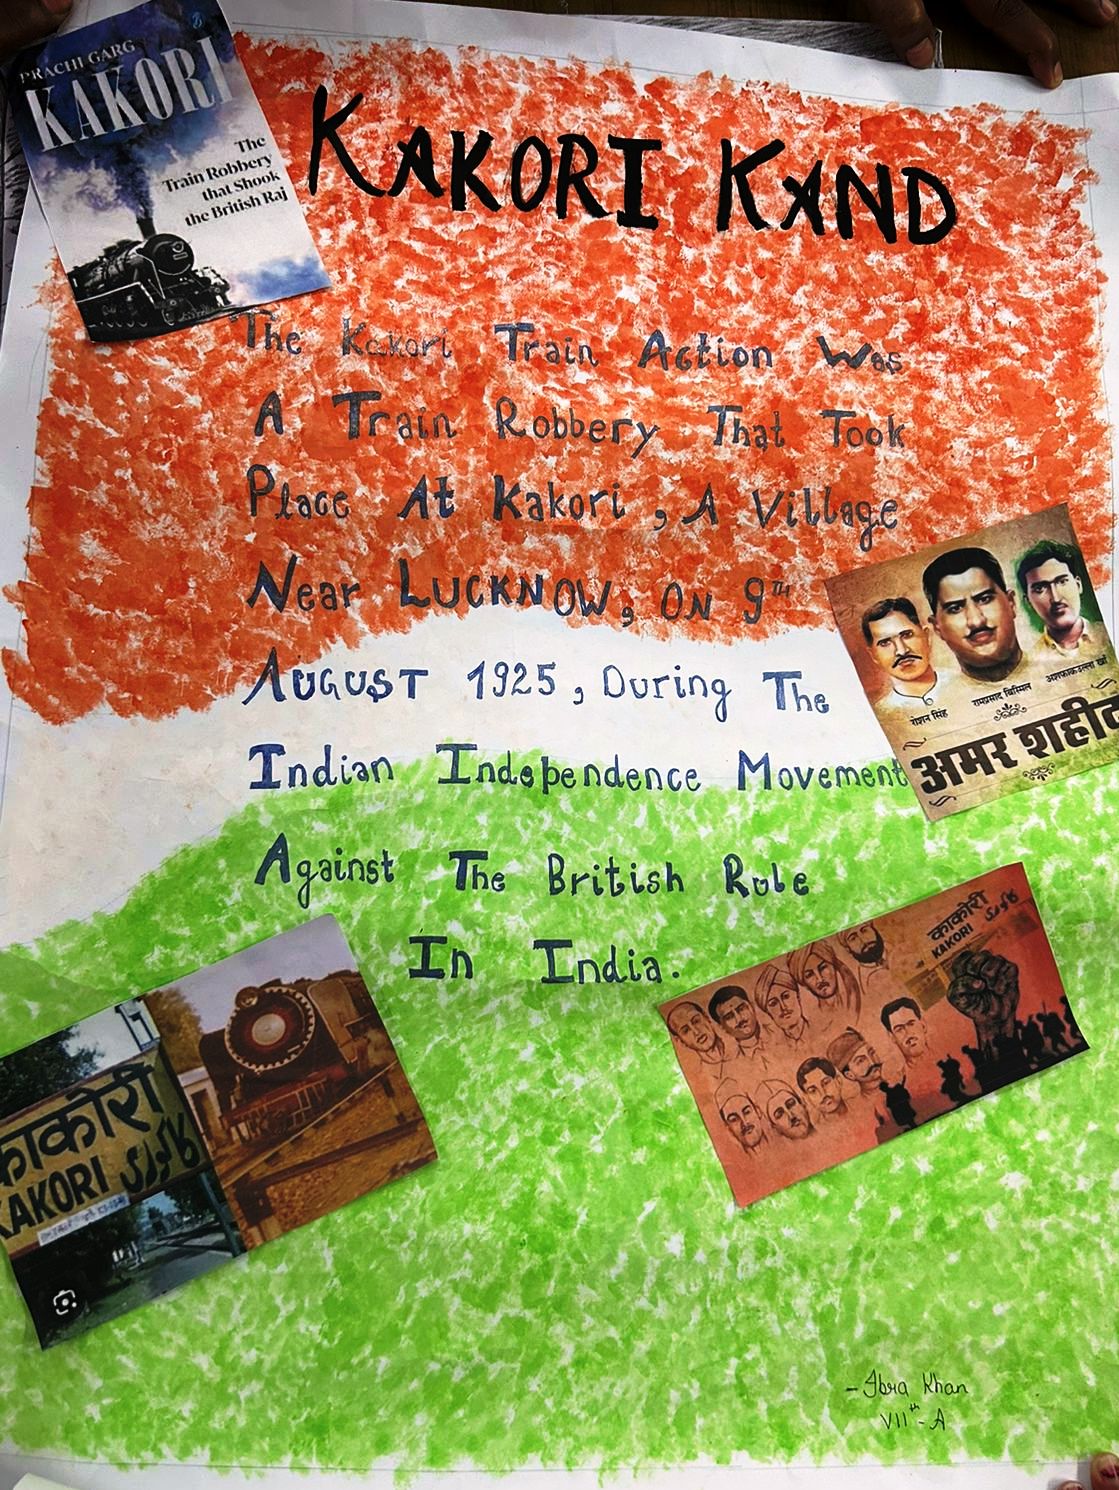 PRACHI GARG
KAKORI
The
Train Robbery
that Shook
the British Raj
KAKORI KAND
The Kakori Train Action Was
A Train Robbery That Took
Place At Kakori, A Village
Near LUCKNOW, ON 9TH
AUGUST 1925, During The
Indian Independence Movement
Against The British Rule
In India.
रोशन सिंह
रामप्रसाद बिस्मिल
अशफाकउल्ला खाँ
अमर शहीद
काकोरी
KAKORI
काकोरी
KAKORI
-Ibra Khan
VIIth-A